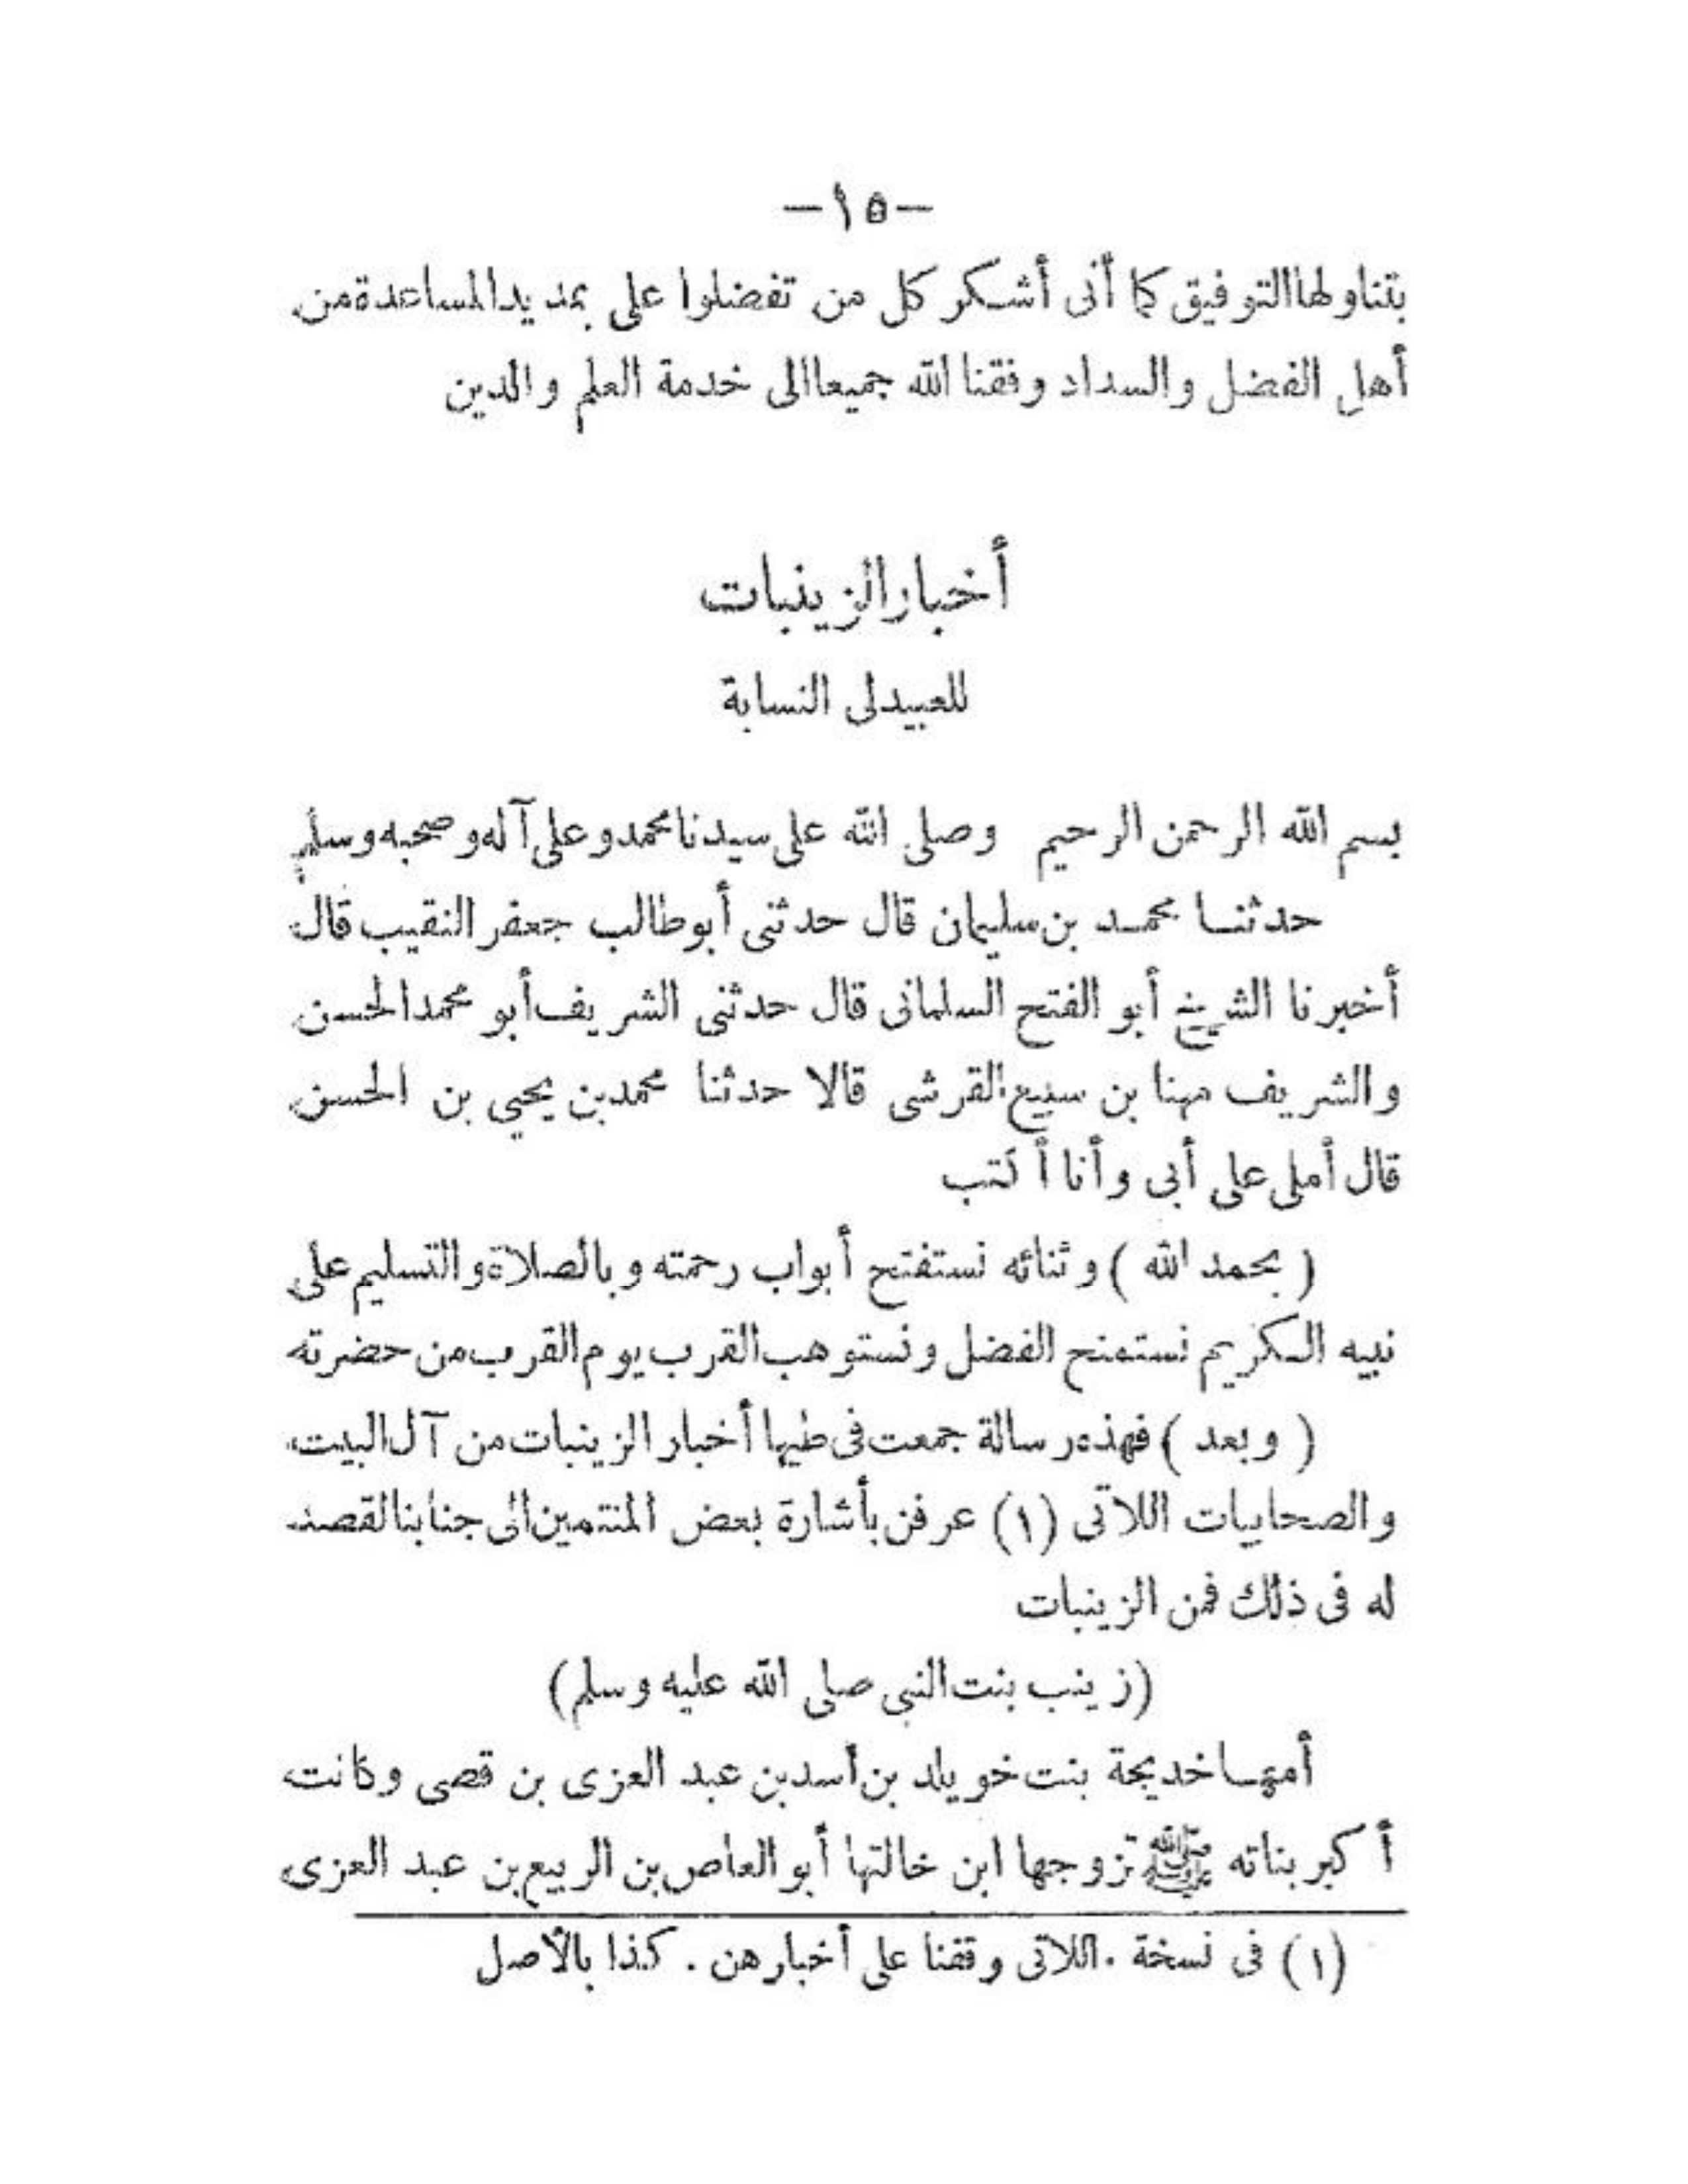 — ١٥ —
بتناولها التوفيق كما أنى أشكر كل من تفضلوا على بمد يد المساعدة من
أهل الفضل والسداد وفقنا الله جميعا الى خدمة العلم والدين
أخبار الزينبات
للعبيدلى النسابة
بسم الله الرحمن الرحيم وصلى الله على سيدنا محمد وعلى آله وصحبه وسلم
حدثنا محمد بن سليمان قال حدثنى أبو طالب جعفر النقيب قال
أخبرنا الشيخ أبو الفتح السلمانى قال حدثنى الشريف أبو محمد الحسن
والشريف مهنا بن سبيع القرشى قالا حدثنا محمد بن يحيي بن الحسن
قال أملى على أبى وأنا أكتب
( بحمد الله ) وثنائه نستفتح أبواب رحمته وبالصلاة والتسليم على
نبيه الكريم نستمنح الفضل ونستوهب القرب يوم القرب من حضرته
( وبعد ) فهذه رسالة جمعت فى طيها أخبار الزينبات من آل البيت
والصحابيات اللاتى (١) عرفن بأشارة بعض المنتمين الى جنابنا لقصد
له فى ذلك فمن الزينبات
(زينب بنت النبى صلى الله عليه وسلم)
أمها خديجة بنت خويلد بن أسد بن عبد العزى بن قصى وكانت
أكبر بناته ﷺ تزوجها ابن خالتها أبو العاص بن الربيع بن عبد العزى
(١) فى نسخة . اللاتى وقفنا على أخبارهن . كذا بالأصل